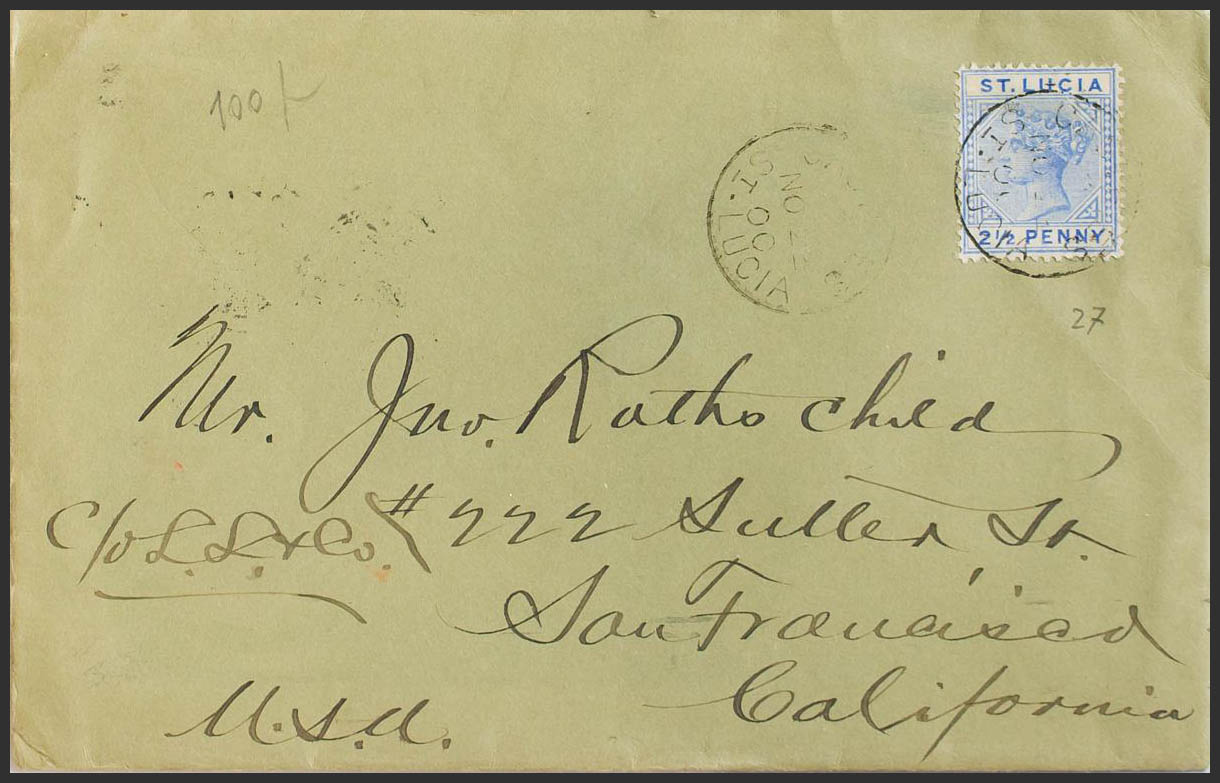 100/
ST. LUCIA
2½ PENNY
ST. LUCIA
27
Mr. Jno. Rothschild
c/o L.S. & Co. #222 Sutter St.
San Francisco
California
U.S.A.